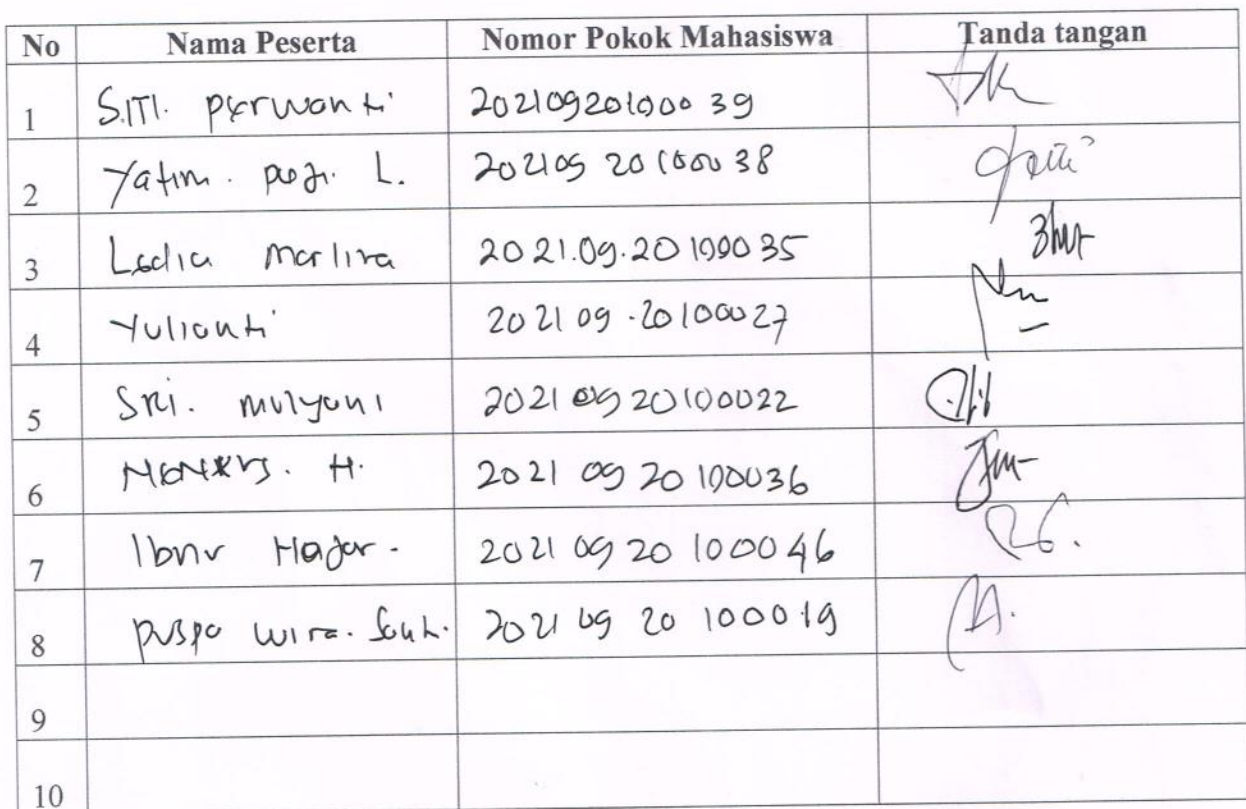 No Nama Peserta Nomor Pokok Mahasiswa Tanda tangan
1 SITI. Perwanti 20210920100039
2 Yatim. puji. L. 20210920100038
3 Ledia Marlina 2021.09.20100035
4 Yulianti 202109.20100027
5 Sri. Mulyani 20210920100022
6 H. 2021 09 20 100036
7 Ibnu Hajar. 2021 09 20 100046
8 Puspa Wira. 2021 09 20 100019
9
10